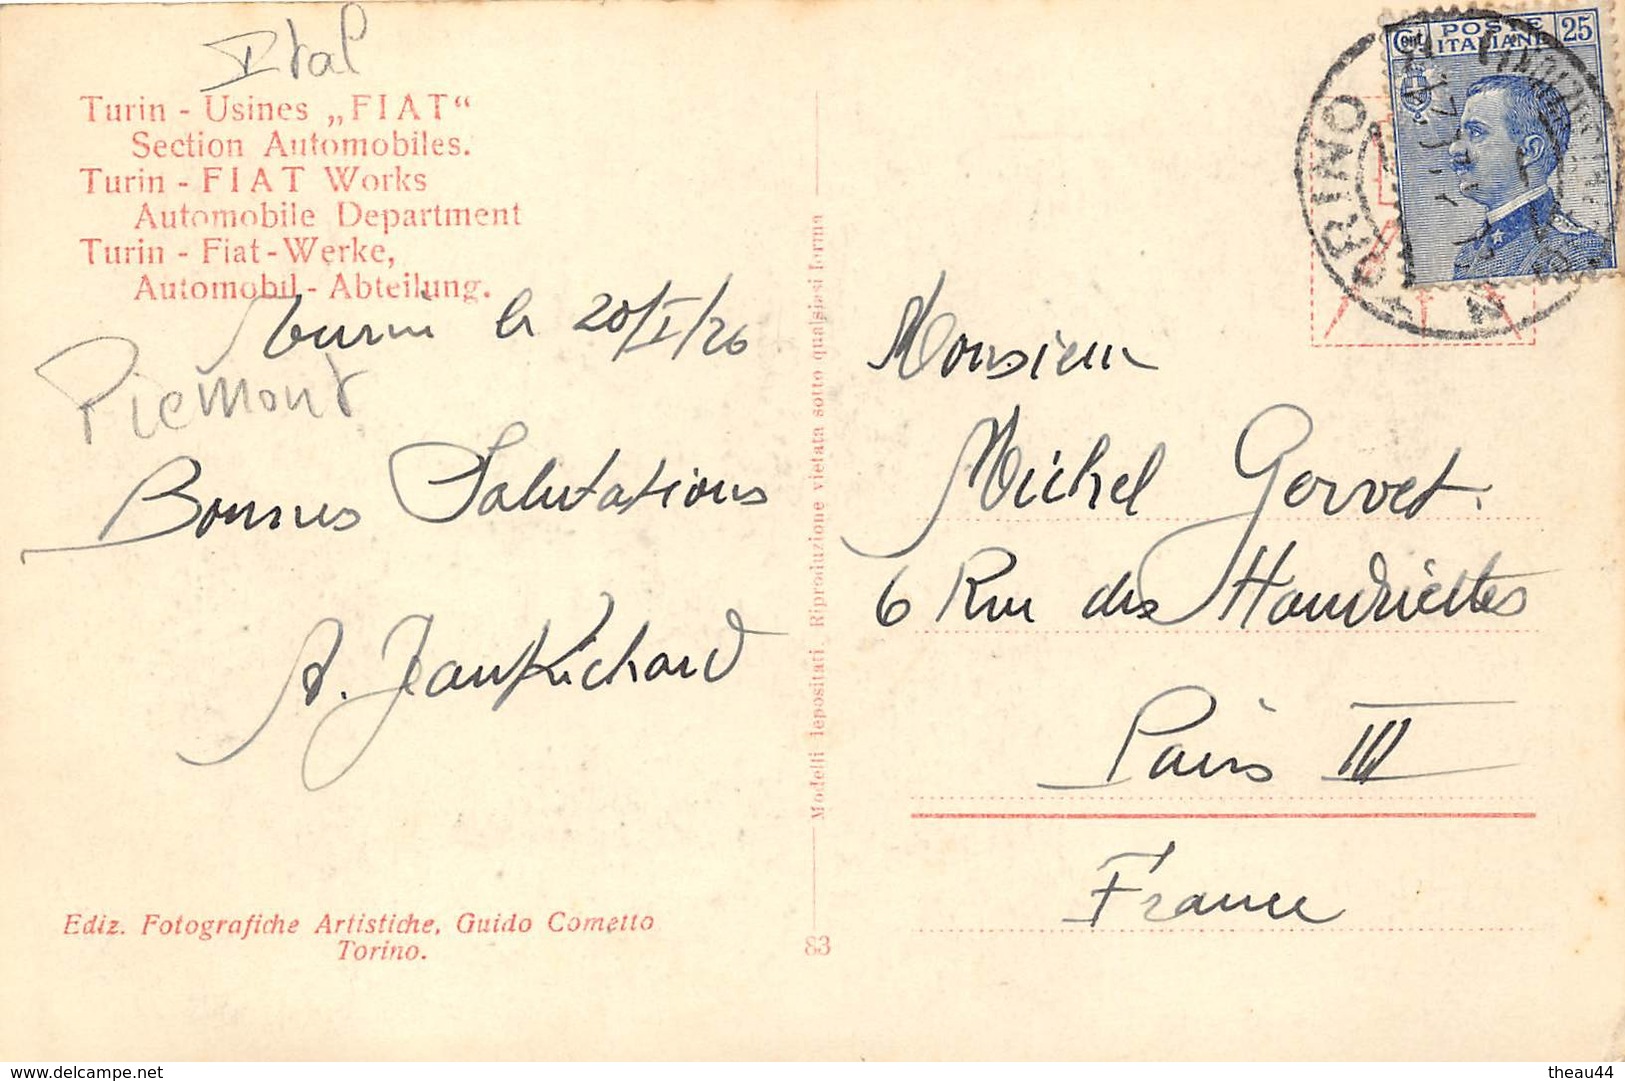 Ital
Turin - Usines „FIAT“
Section Automobiles.
Turin - FIAT Works
Automobile Department
Turin - Fiat-Werke,
Automobil - Abteilung.
Turin le 20/I/26
Piemont
Bonnes Salutations
A. JeanRichard
Ediz. Fotografiche Artistiche, Guido Cometto
Torino.
Modelli depositati. Riproduzione vietata sotto qualsiasi forma
83
Cent. POSTE ITALIANE 25
TORINO
Monsieur
Michel Gervet.
6 Rue des Haudriettes
Paris III
France
www.delcampe.net
theau44